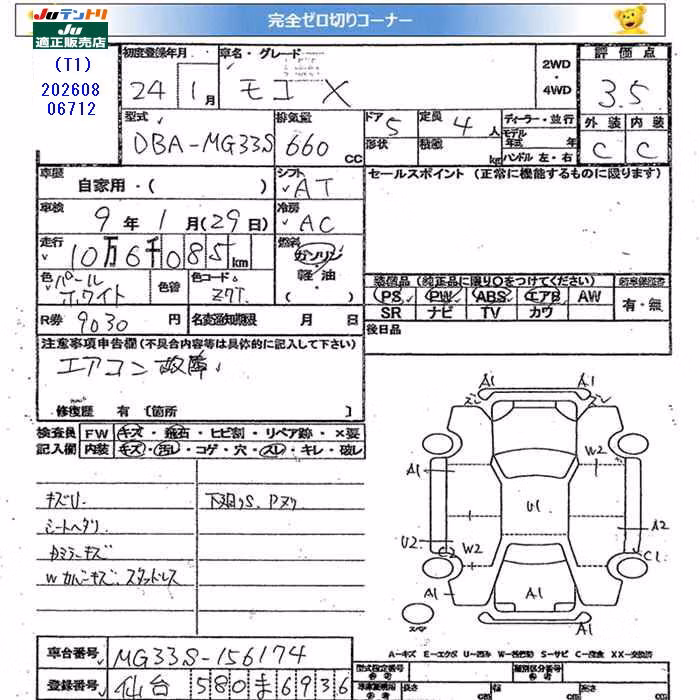 Juテントリ
適正販売店
完全ゼロ切りコーナー
(T1)
202608
06712
初度登録年月
24 1月
車名・グレード
モコ X
2WD
・
4WD
評価点
3.5
外装 内装
C C
型式
DBA-MG33S
排気量
660 CC
ドア 5
定員 4人
形状
積載 kg
ディーラー・並行
モデル年式 年式
ハンドル 左・右
車歴
自家用・( )
シフト
AT
セールスポイント (正常に機能するものに限ります)
車検
9年1月(29日)
冷房
AC
走行
10万6千085km
燃料
ガソリン
軽油
( )
色
パール
ホワイト
色替
色コード
Z7T
装備品 (純正品に限り○をつけてください)
PS PW ABS エアB AW
SR ナビ TV カワ
新車保証書
有・無
R券 9030円
名変通知期限 月 日
後日品
注意事項申告欄(不具合内容等は具体的に記入して下さい)
エアコン故障
修復歴 有 [箇所 ]
検査員 FW キズ・飛石・ヒビ割・リペア跡・×要
記入欄 内装 キズ・汚レ・コゲ・穴・スレ・キレ・破レ
キズU
下廻りS、Pヌリ
シートヘタリ
カミラーキズ
Wカバーキズ、スタットレス
A1 A1
ズレ ズレ
A1 W2
U1
A2
U2 C2 W2 C1
A1 A1 A1
A1
スペア
A=キズ E=エクボ U=凹み W=補修跡 S=サビ C=腐食 XX=交換済
車台番号 MG33S-156174
登録番号 仙台 580 ま 6936
型式指定番号
類別区分番号
長さ cm 幅 cm 高さ cm